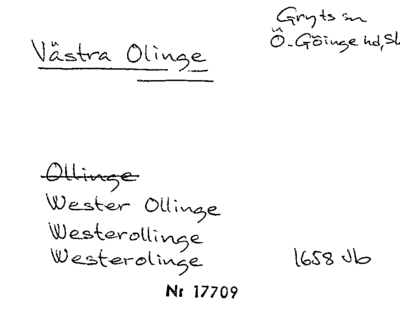 Gryts sn
Västra Olinge
Ö. Göinge hd,
Ollinge
Wester Ollinge
Westerollinge
Westerolinge 1658 Jb
Nr 17709